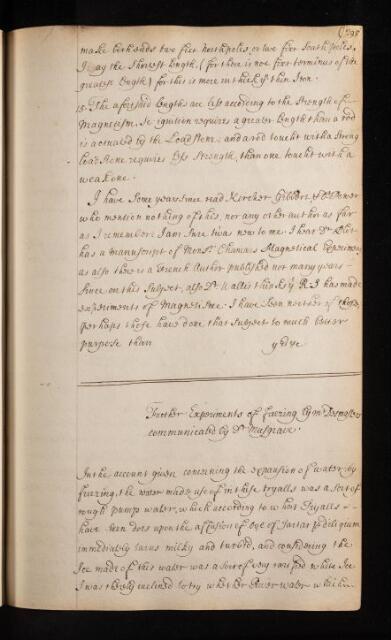 make both ends two fixt north poles, or two fixt South poles,
I say the Shortest length (for there is not fixt terminus of the
greatest length) for this is more in thick yn thin Iron.
15. The aforesaid lengths are less according to the strength of
Magnetisme. Ie ignition requires a greater length than a rod
is actuated by the Loadstone: and a rod toucht with a strong
loadstone requires less strength, than one toucht with a
weak one.
I have Some years since read Kircher, Gilbert, & Dr Power
who mention nothing of this, nor any other author as far
as I remember: I am sure twas new to me I hear Dr Plot
has a manuscript of Monsr Magnetical Experiments
as also there is a French Author published not many years
since on this Subject, also Dr Wallis this Esq R. B has made
experiments of Magnetisme. I have seen neither of these,
perhaps those have done that Subject to much better
purpose than yours
Further Experiments of freezing by Mr
communicated by Dr Musgrave.
In the account given concerning the expansion of water by
freezing, the water made use of in those tryalls was a sort of
rough pump water, which according to what Tryalls
have been does upon the affusion of oyle of Tartar p diliquium
immediately turns milky and turbid, and considering the
Ice made of this water was a sort of very white Ice
I was thereby inclined to try whether River water which